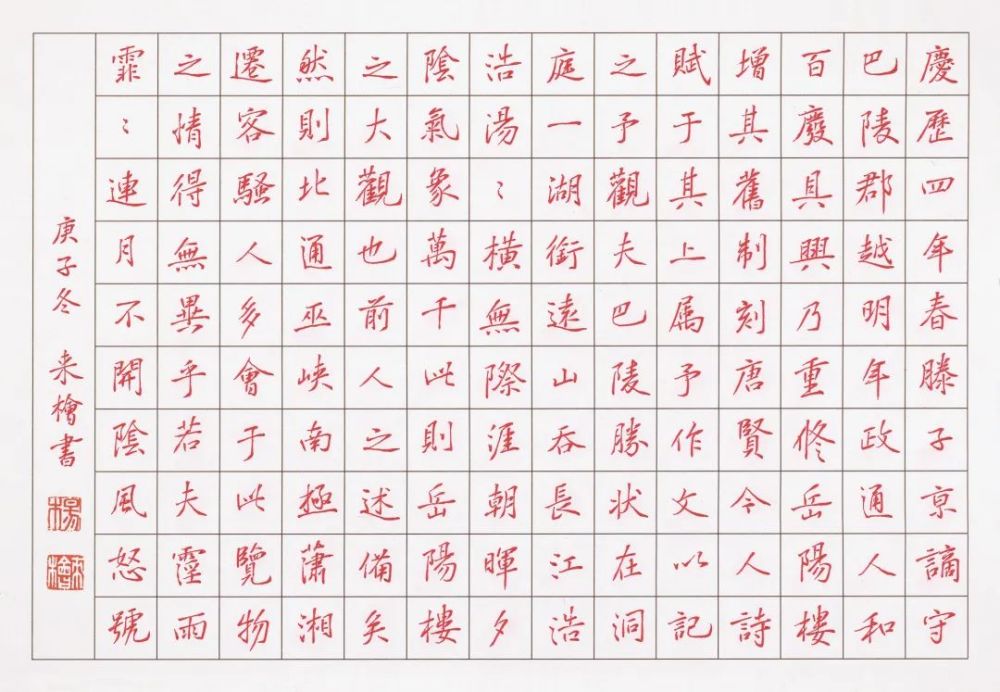 慶歷四年春滕子京謫守
巴陵郡越明年政通人和
百廢具興乃重修岳陽樓
增其舊制刻唐賢今人詩
賦于其上属予作文以記
之予觀夫巴陵勝狀在洞
庭一湖銜遠山吞長江浩
浩湯〻橫無際涯朝暉夕
陰氣象萬千此則岳陽樓
之大觀也前人之述備矣
然則北通巫峽南極瀟湘
遷客騷人多會于此覽物
之情得無異乎若夫霪雨
霏〻連月不開陰風怒號
庚子冬 来檜書
楊